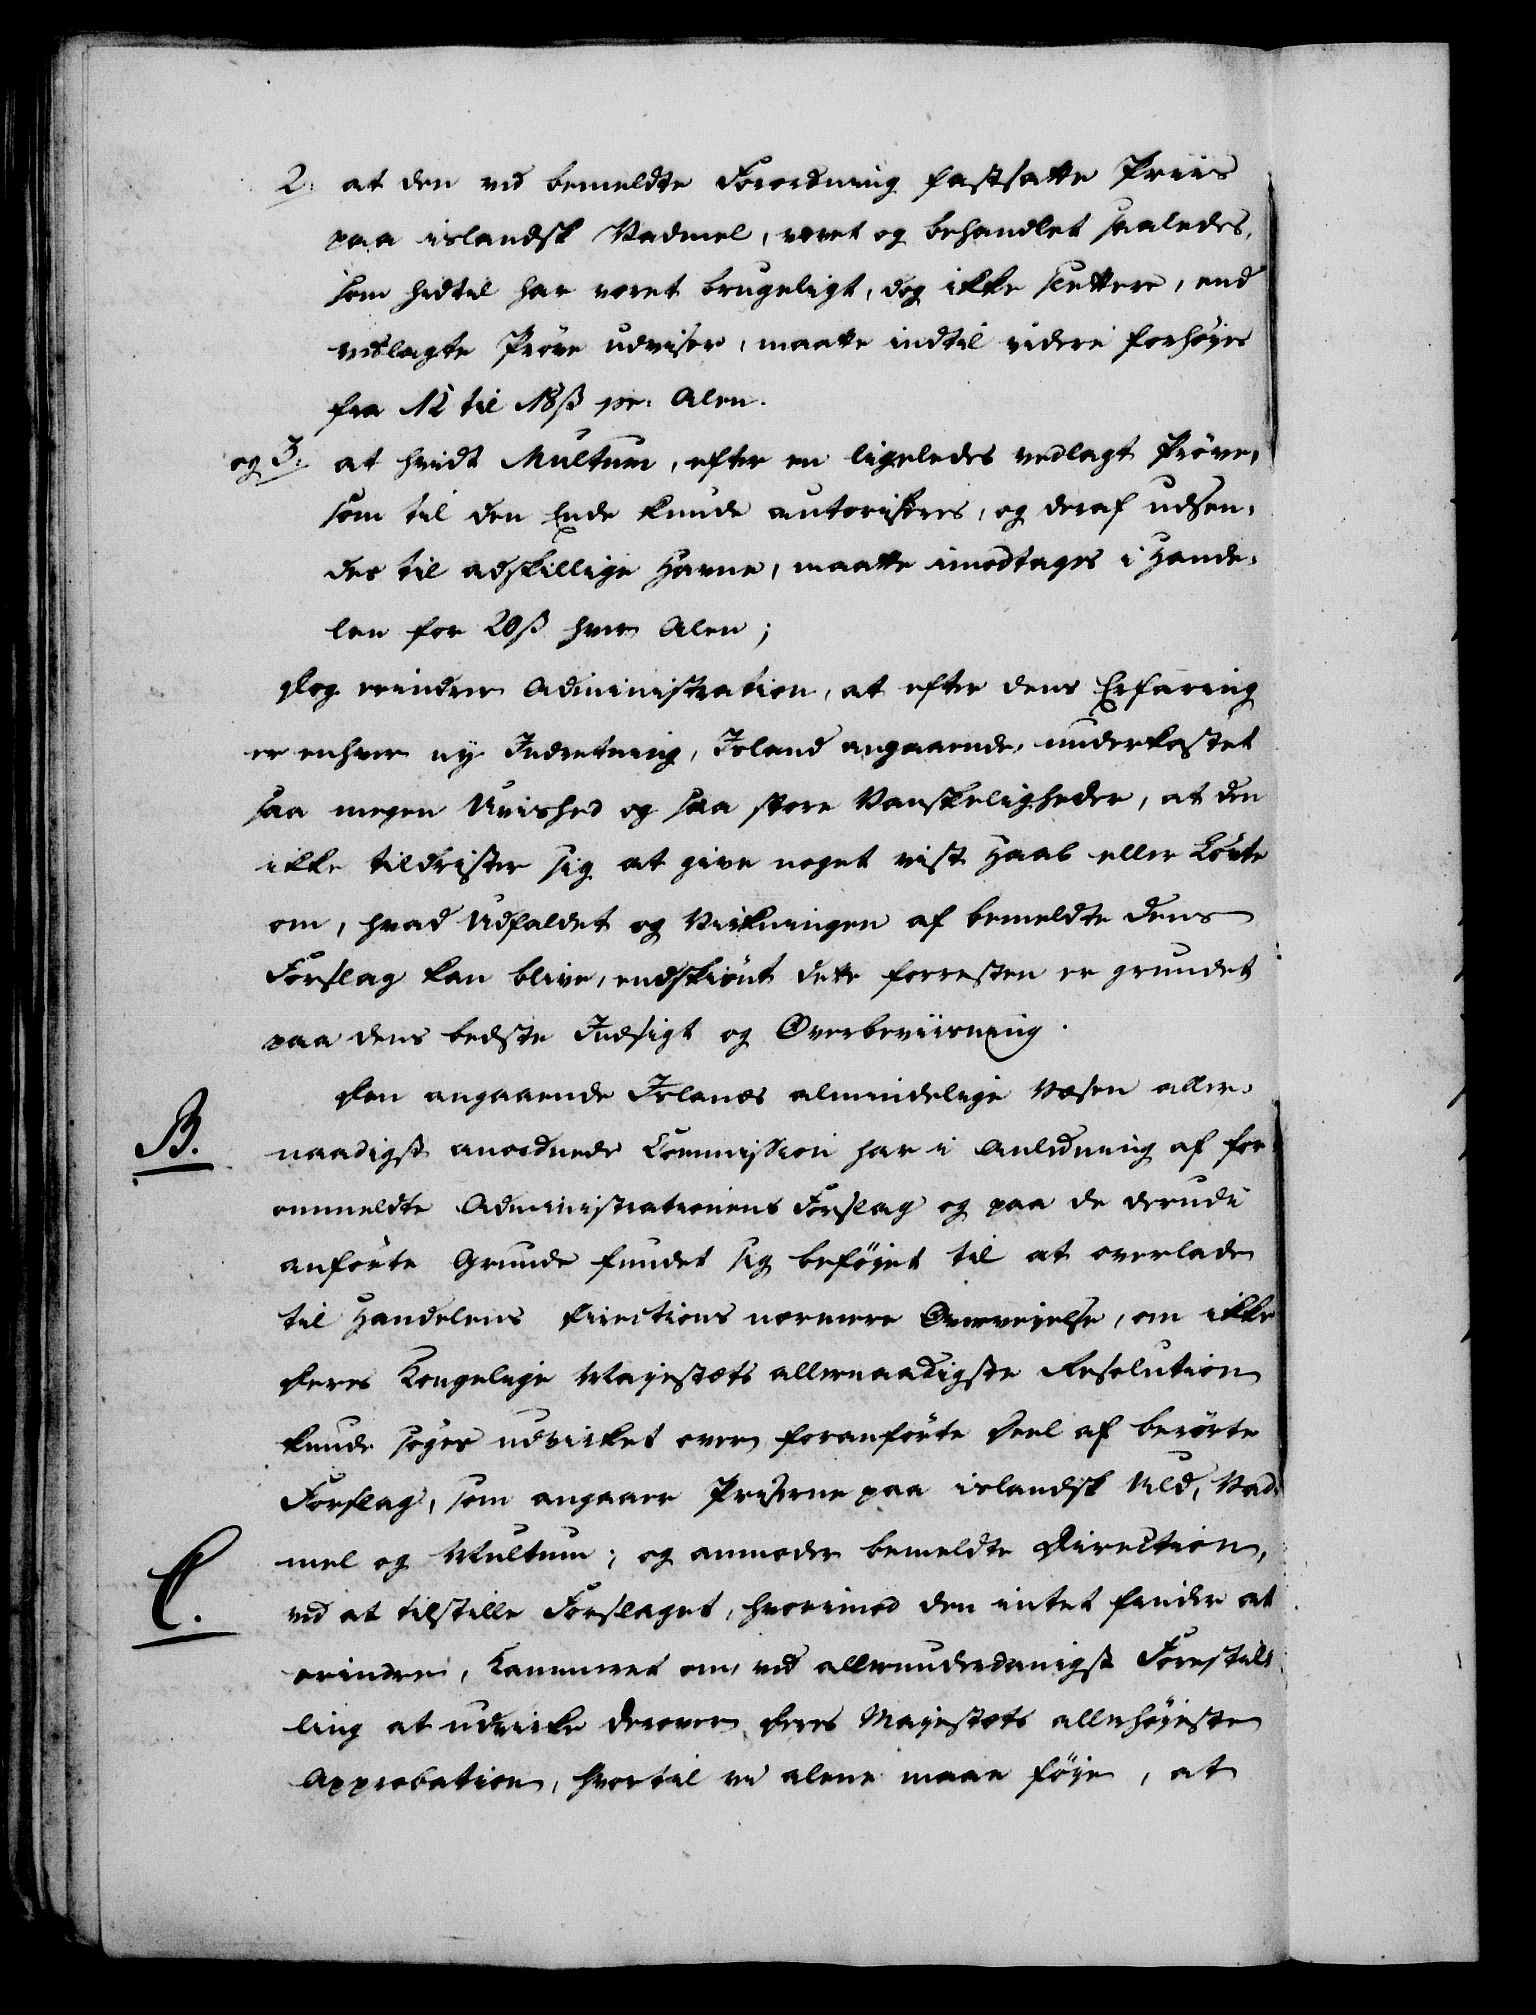 2: at den ved bemeldte Forordning fastsatte Priis
paa islandsk Vadmel, vævet og behandlet saaledes,
som hidtil har været brugeligt, dog ikke slettere, end
vedlagte Prøve udviser, maatte indtil videre forhøyes
fra 12 til 18 ß pr. Alen.
og 3: at hvidt Multum, efter en ligeledes vedlagt Prøve,
som til den Ende kunde autoriseres, og deraf udsen-
des til adskillige Havne, maatte imodtages i Hande-
len for 20 ß hver Alen;
Dog erindrer Administration, at efter dens Erfaring
er enhver ny Indretning, Island angaaende, underkastet
saa megen Uvished og saa store Vanskeligheder, at den
ikke tildrister sig at give noget vist Haab eller Løvte
om, hvad Udfaldet og Virkningen af bemeldte dens
Forslag kan blive, endskiønt dette forresten er grundet
paa dens bedste Indsigt og Overbeviisning.
Den angaaende Islands almindelige Væsen aller-
B. naadigst anordnede Commission har i Anledning af for-
ommeldte Administrationens Forslag og paa de derudi
anførte Grunde fundet sig beføyet til at overlade
til Handelens Directions nærmere Overveyelse, om ikke
Deres Kongelige Majestæts allernaadigste Resolution
kunde søges udvirket over foranførte Deel af berørte
Forslag, som angaaer Priserne paa islandsk Uld, Vad-
C. mel og Multum; og anmoder bemeldte Direction,
ved at tilstille Forslaget, hvorimod den intet finder at
erindre, Kammeret om, ved allerunderdanigst Forestil-
ling at udvirke derover Deres Majestæts allerhøyeste
Approbation, hvortil vi alene maae føye, at